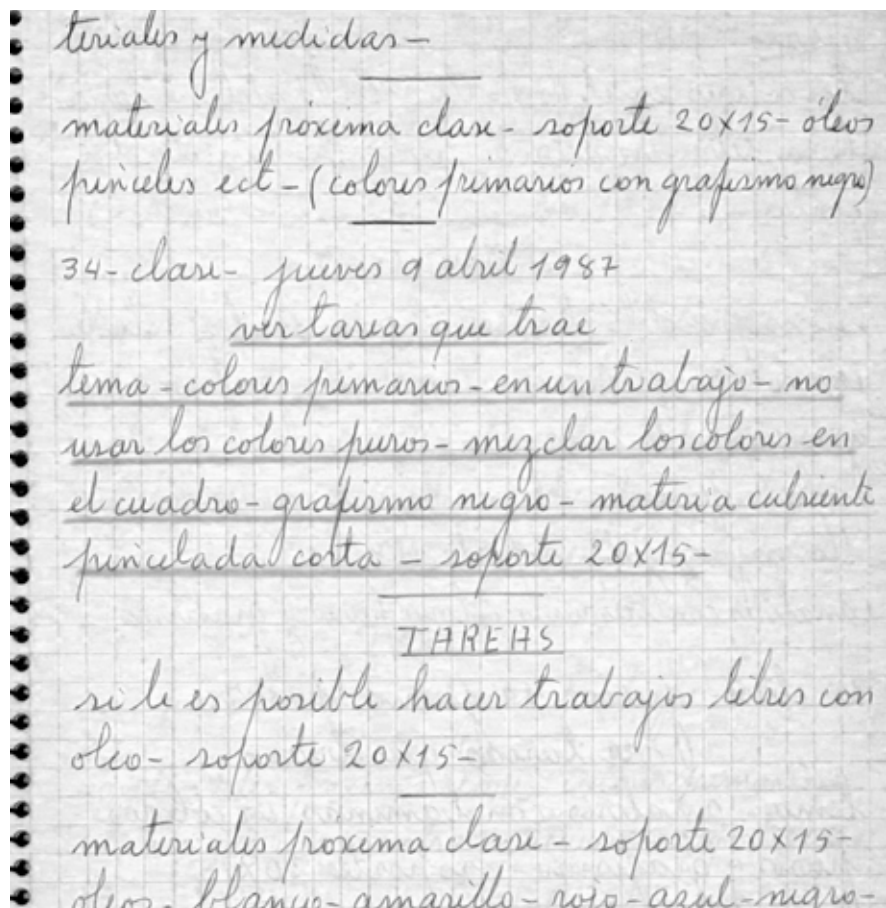 teriales y medidas-
materiales próxima clase- soporte 20x15- óleos
pinceles ect-(colores primarios con grafismo negro)
34- clase- jueves 9 abril 1987
ver tareas que trae
tema-colores primarios-en un trabajo-no
usar los colores puros-mezclar los colores en
el cuadro-grafismo negro-materia cubriente
pincelada corta - soporte 20x15-
TAREAS
si le es posible hacer trabajos libres con
oleo- soporte 20x15-
materiales proxima clase- soporte 20x15-
oleos- blanco-amarillo-rojo-azul-negro-